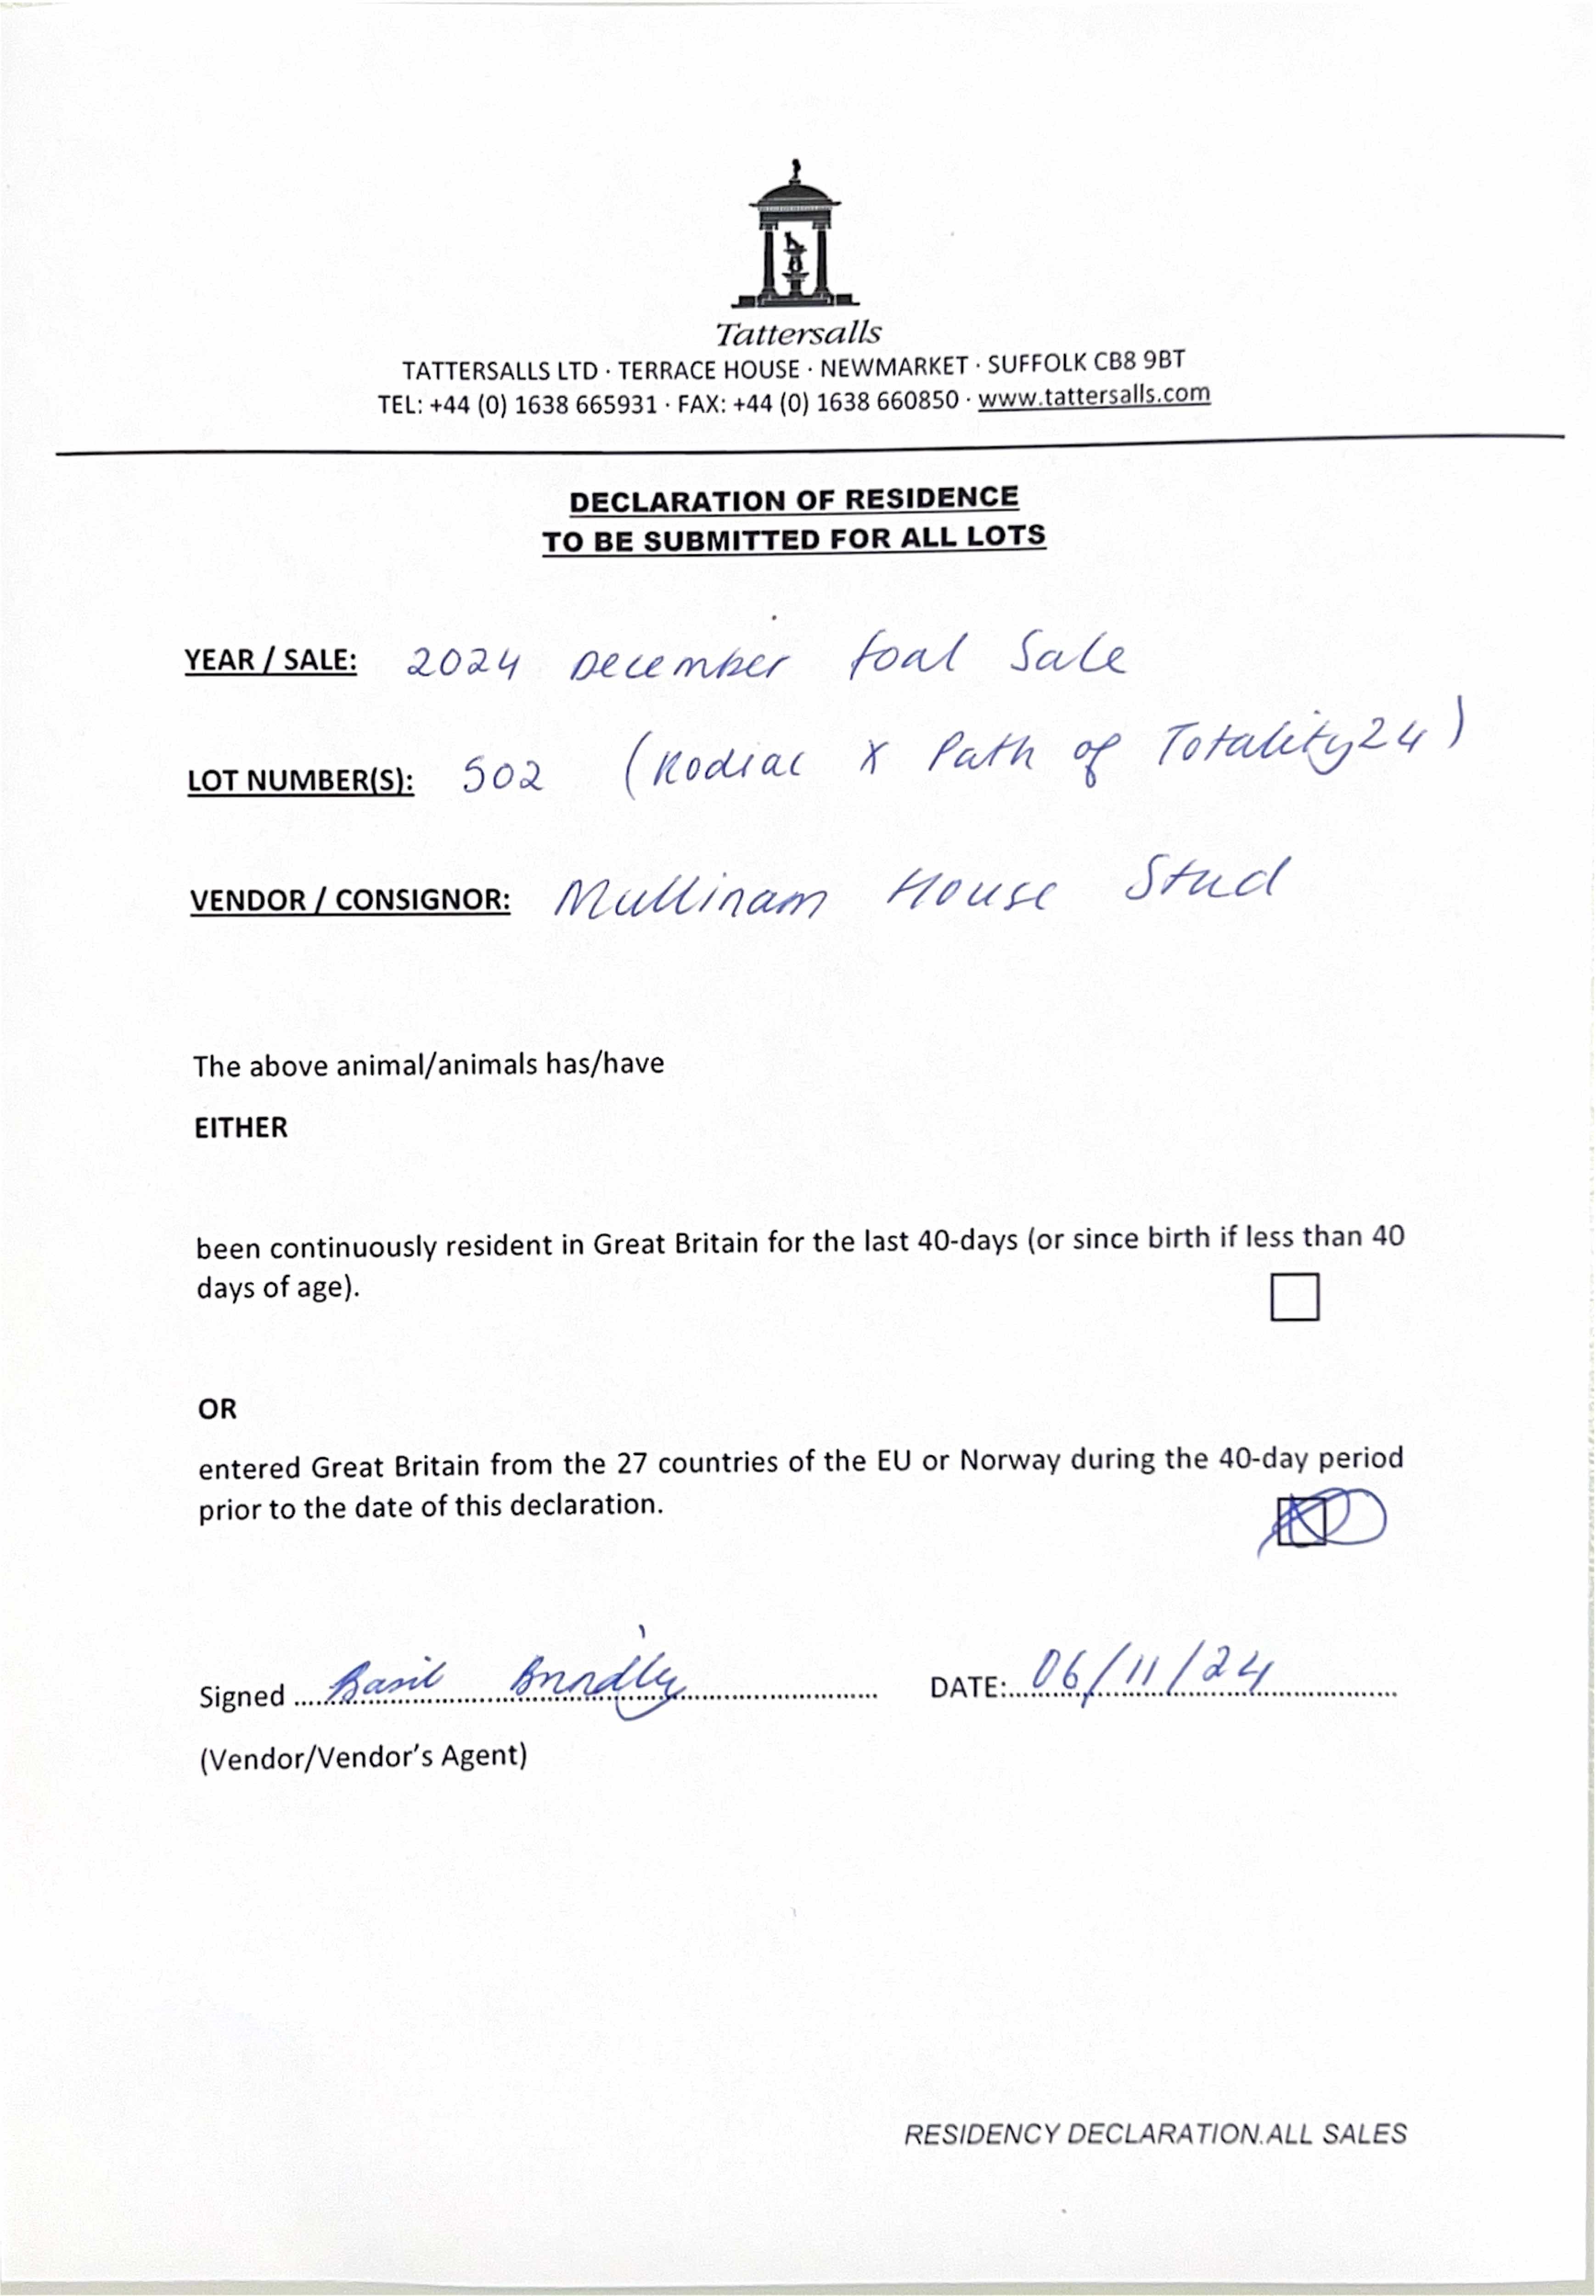 Tattersalls
TATTERSALLS LTD · TERRACE HOUSE · NEWMARKET · SUFFOLK CB8 9BT
TEL: +44 (0) 1638 665931 · FAX: +44 (0) 1638 660850 · www.tattersalls.com
DECLARATION OF RESIDENCE
TO BE SUBMITTED FOR ALL LOTS
YEAR / SALE: 2024 December foal Sale
LOT NUMBER(S): 502 (Kodiac X Path of Totality24)
VENDOR / CONSIGNOR: Mullinam House Stud
The above animal/animals has/have
EITHER
been continuously resident in Great Britain for the last 40-days (or since birth if less than 40
days of age).
OR
entered Great Britain from the 27 countries of the EU or Norway during the 40-day period
prior to the date of this declaration.
Signed Basil DATE: 06/11/24
(Vendor/Vendor's Agent)
RESIDENCY DECLARATION.ALL SALES